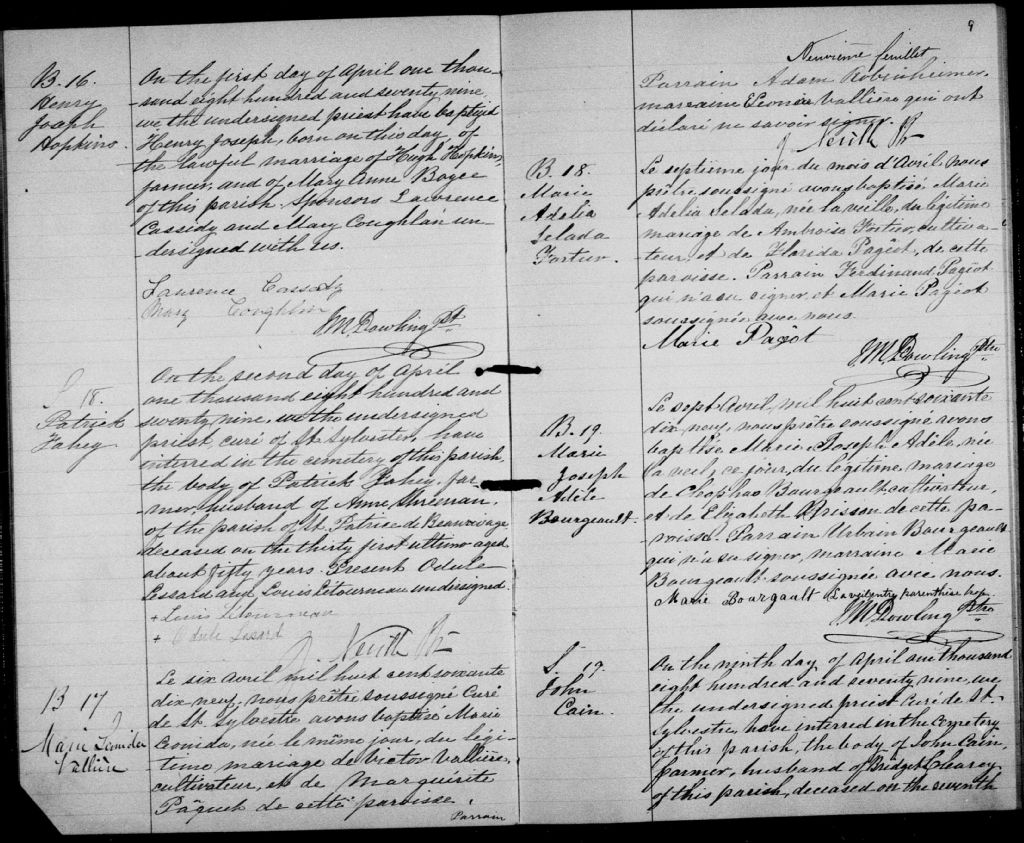 B. 16.
Henry
Joseph
Hopkins.
On the first day of April one thou-
-sand eight hundred and seventy nine,
we the undersigned priest have baptized
Henry Joseph, born on this day, of
the lawful marriage of Hugh Hopkins,
farmer, and of Mary Anne
of this parish. Sponsors Lawrence
Cassidy and Mary Coughlan un-
dersigned with us.
Laurence Cassedy
Mary Coughlin
JM Dowling Pt
S. 18.
Patrick
Fahey
On the second day of April
one thousand eight hundred and
seventy nine, we the undersigned
priest curé of St. Sylvester, have
interred in the cemetery of this parish
the body of Patrick Fahey, far-
mer, husband of Anne
of the parish of St. Patrice de Beaurivage,
deceased on the thirty first ultimo aged
about fifty years. Present Odule
Lessard and Louis Létourneau undersigned.
+ Louis Létourneau
+ Odule Lessard
J Neville Pt
B 17
Marie Leonida
Vallière
Le six Avril mil huit cent soixante
dix-neuf, nous prêtre soussigné Curé
de St. Sylvestre avons baptisé Marie
Leonida, née le même jour, du légi-
-time mariage de Victor Vallière,
cultivateur, et de Marguerite
Pâquet de cette paroisse.
Parrain
9
Neuvième feuillet
Parrain Adam Robinheimer,
marraine Leonisa Vallière qui ont
déclaré ne savoir signer.
J Neville Pt
B. 18.
Marie
Adelia
Selada
Fortier.
Le septième jour du mois d'Avril nous
prêtre soussigné avons baptisé Marie
Adelia Selada, née la veille, du légitime
mariage de Ambroise Fortier, cultiva-
teur, et de Florida Pagêot, de cette
paroisse. Parrain Ferdinand Pagêot
qui n'a su signer, et Marie Pageot
soussignée avec nous.
Marie Pagêot
JM Dowling Ptre
B. 19.
Marie
Joseph
Adèle
Bourgeault.
Le sept Avril, mil huit cent soixante
dix neuf, nous prêtre soussigné avons
baptisé Marie Joseph Adèle née
ce jour, du légitime mariage
de Bourgeault cultivateur,
et de Elizabeth de cette pa-
roisse. Parrain Urbain Bourgeault
qui n'a su signer, marraine Marie
Bourgeault soussignée avec nous.
Marie Bourgault
JM Dowling Ptre
S. 19.
John
Cain.
On the ninth day of April one thousand
eight hundred and seventy nine, we
the undersigned priest Curé de St.
Sylvestre, have interred in the Cemetery
of this parish, the body of John Cain,
farmer, husband of Bridget Cleary
of this parish, deceased on the seventh